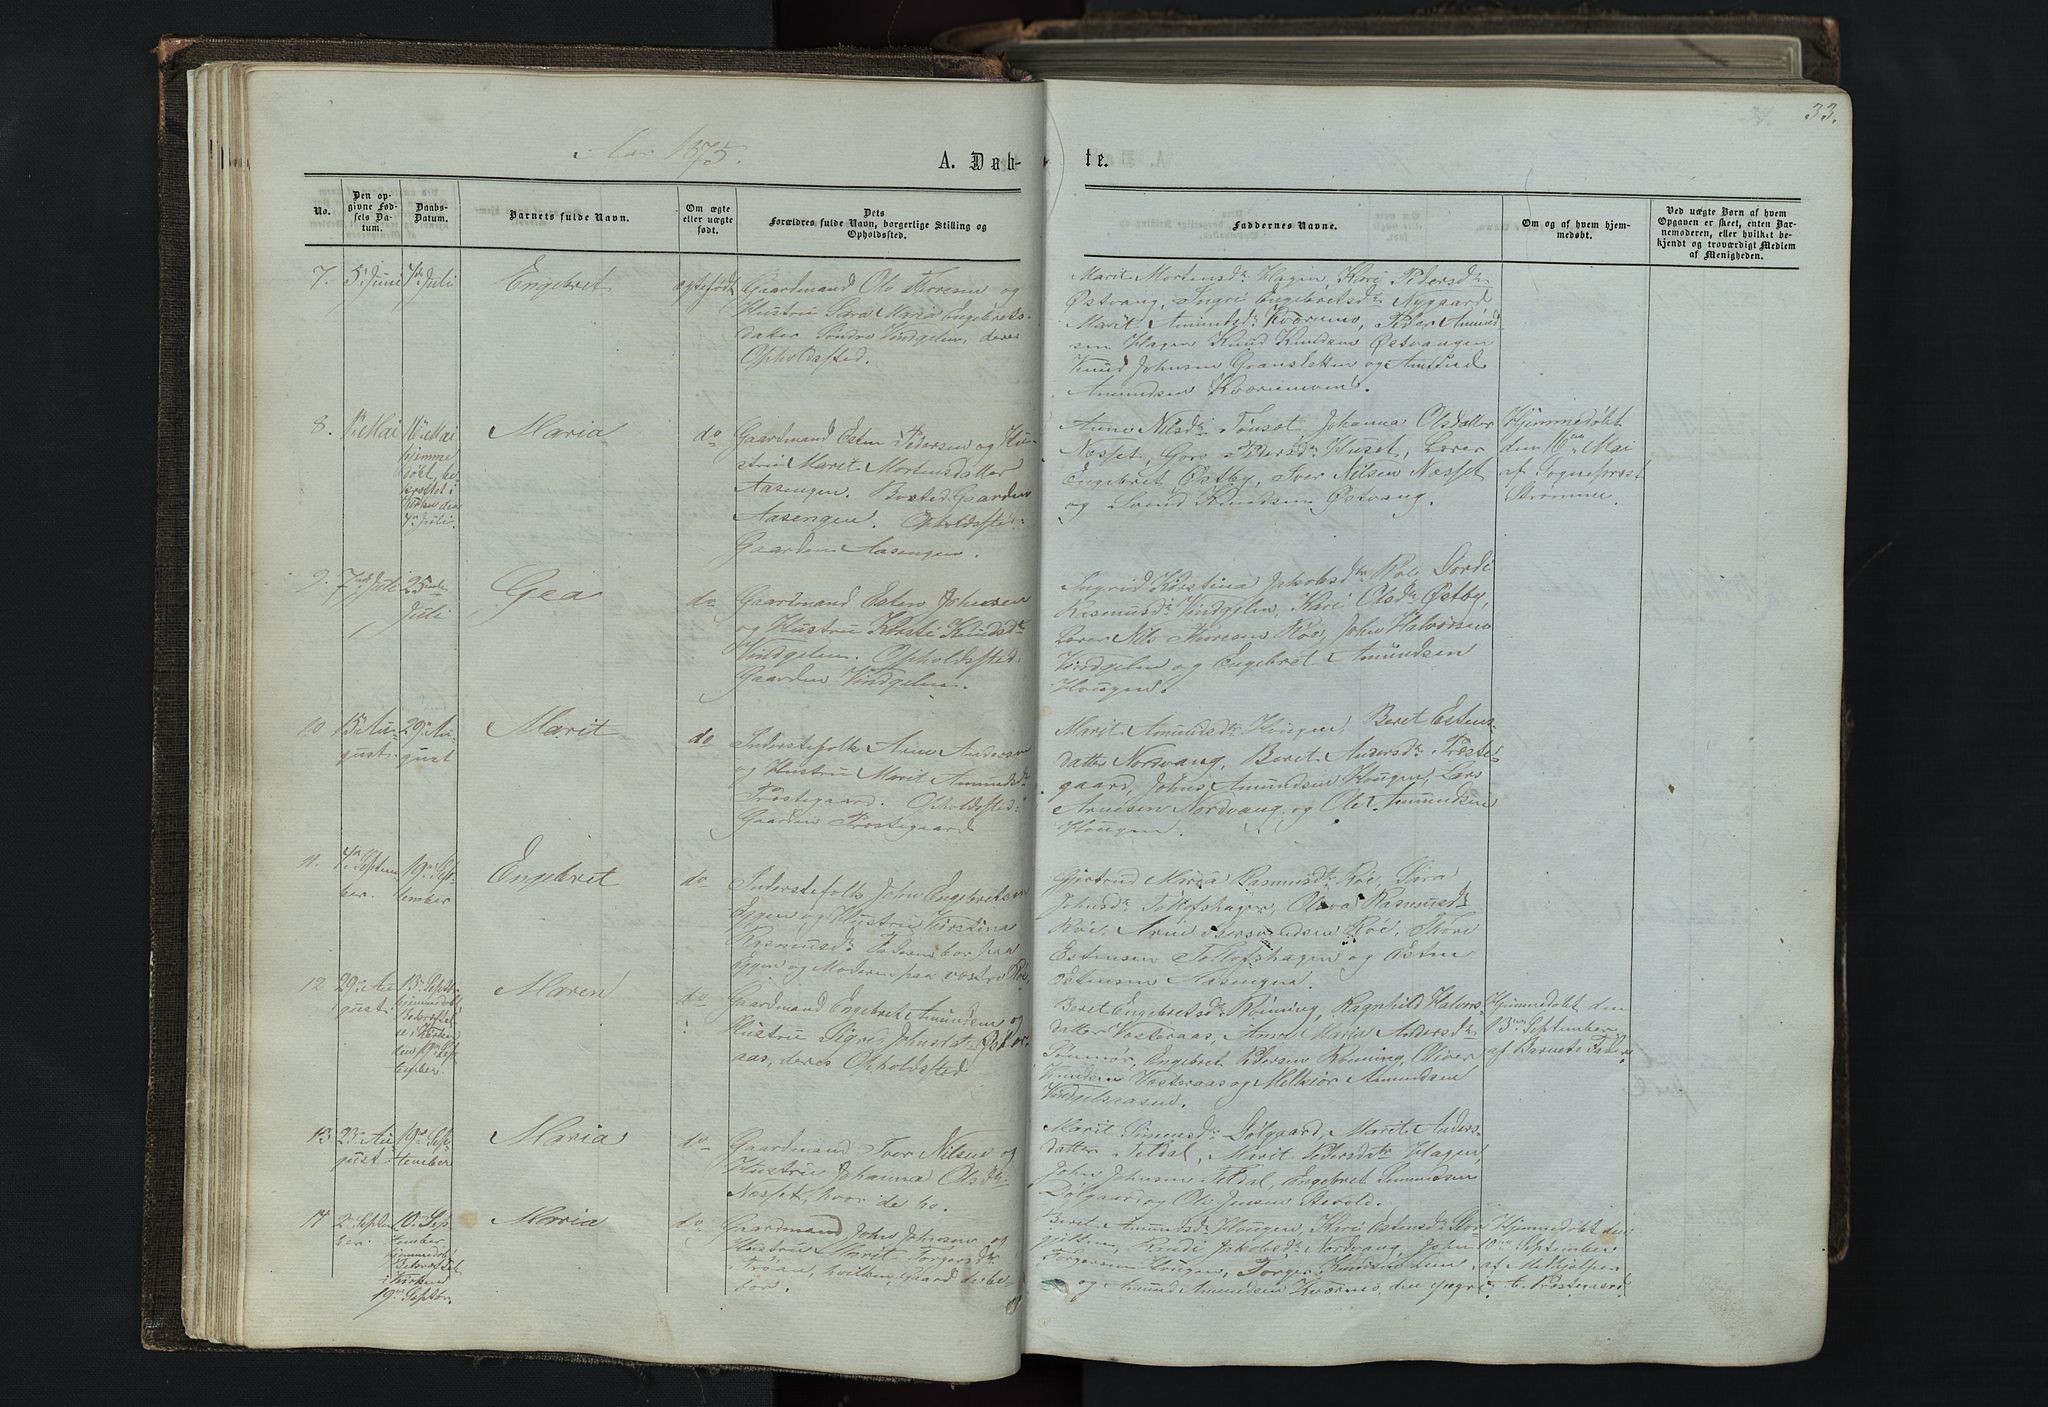 33.
Aar 1875.
A. Døb-
te.
No.
Den op-
givne Fød-
sels Da-
tum.
Daabs-
Datum.
Barnets fulde Navn.
Om ægte
eller uægte
født.
Dets
Forældres fulde Navn, borgerlige Stilling og
Opholdssted.
Faddernes Navne.
Om og af hvem hjem-
medøbt.
Ved uægte Børn af hvem
Opgaven er skeet, enten Bar-
nemoderen, eller hvilket be-
kjendt og troværdigt Medlem
af Menigheden.
7.
5 Juni
4de Juli
Engebret
ægtefødt
Gaardmand Ole Thoresen og
Hustru Sara Maria Engebrets-
datter Søndre Vindgelen, deres
Opholdssted.
Marit Mortensdr Hagen, Kari Pedersdr
Østvang, Ingri Engebretsdr Nygaard
Marit Amundsdr Kværnmo, Peder Amund
sen Hagen Knud Knudsen Østvangen
Knud Johnsen og Amund
Amundsen Kværnmoen.
8.
1ste Mai
16de Mai
hjemme
døbt, be-
kræftet i
Kirken den
4de Juli.
Maria
do
Gaardmand Esten Pedersen og Hu-
stru Marit Mortensdatter
Aasengen. Bosted Gaarden
Aasengen. Opholdssted:
Gaarden Aasengen.
Anne Nilsdr Tønset Johanna Olsdatter
Næsset, Goro Pedersdr Huset, Lærer
Engebret Østby, Iver Nilsen Næsset
og Svend Knudsen Østvang.
Hjemmedøbt
den 16de Mai
af Sogneprest
Strømme.
9.
7de Juli
25de
Juli
Gea
do
Gaardmand Esten Johnsen
og Hustru Kirsti Knudsdr
Vindgelen. Opholdssted:
Gaarden Vindgelen.
Ingrid Kirstina Jakobsdr Røe, Gordi
Rasmusdr Vindgelen, Kari Olsdr Østby,
Lærer Nils Thoresen Røe, John Halvorsen
Vindgelen og Engebret Amundsen
Hougen.
10
15de Au-
gust.
29de Au-
gust
Marit
do
Inderstefolk Arne Andersen
og Hustru Marit Amundsdr
Præstegaard. Opholdssted:
Gaarden Præstegaard
Marit Amundsdr Hougen, Beret Estens-
datter Nordvang, Beret Andersdr Præste-
gaard, Johns Amundsen Hougen, Lars
Arnesen Nordvang og Ole Amundsen
Hougen.
11.
4de Septem
ber.
19de Sep-
tember
Engebret
do
Inderstefolk John Engebretsen
Eggen og Hustru Kirstina
Rasmusdr Faderen bor paa
Eggen og Moderen paa vestre Røe.
Gjertrud Maria Rasmusdr Røe, Sara
Johnsdr Tollefshagen, Oliva Rasmusdr
Røe, Arne Røe, Thore
Estensen Tollefshagen og Esten
Estensen Aasengen.
12
29de Au
gust.
13de Sept.
hjemmedøbt
Bekræftet
i Kirken
den 19de Sep-
tember.
Maren
do
Gaardmand Engebret Amundsen og
Hustru Sigri Johnsdr
aas, deres Opholdssted
Beret Engebretsdr Rønning, Ragnhild Halvors-
datter Vesteraas, Anne Maria Andersdr
Engebret Pedersen Rønning, Oliver
Knudsen Vesteraas og Melkior Amundsen
Vindgelsaasen.
Hjemmedøbt den
13de September
af Barnets Fader.
13
23de Au
gust.
19de Sep-
tember
Maria
do
Gaardmand Iver Nilsen og
Hustru Johanna Olsdr
Næsset, hvor de bo.
Marit Simensdr Dølgaard, Marit Anders-
datter Teldal, Marit Pedersdatr Hagen,
John Johnsen Teldal, Engebret Simensen
Dølgaard og Ole Jensen
14
2de Septem
ber.
10de Sep-
tember
hjemmedøbt
Bekræftet
i Kirken
19de Septbr.
Maria
do
Gaardmand John Johnsen og
Hustru Marit Torgersdr
Troen, hvilken Gaard de be-
bor.
Beret Amundsdr Hougen, Kari Estensdr
Randi Jakobsdr Nordvang, John
Torgersen Hougen, Torger Knudsen
og Amund Amundsen Kværnes, den yngre.
Hjemmedøbt den
10de September
af Medhjælper
A. Præstegaard.